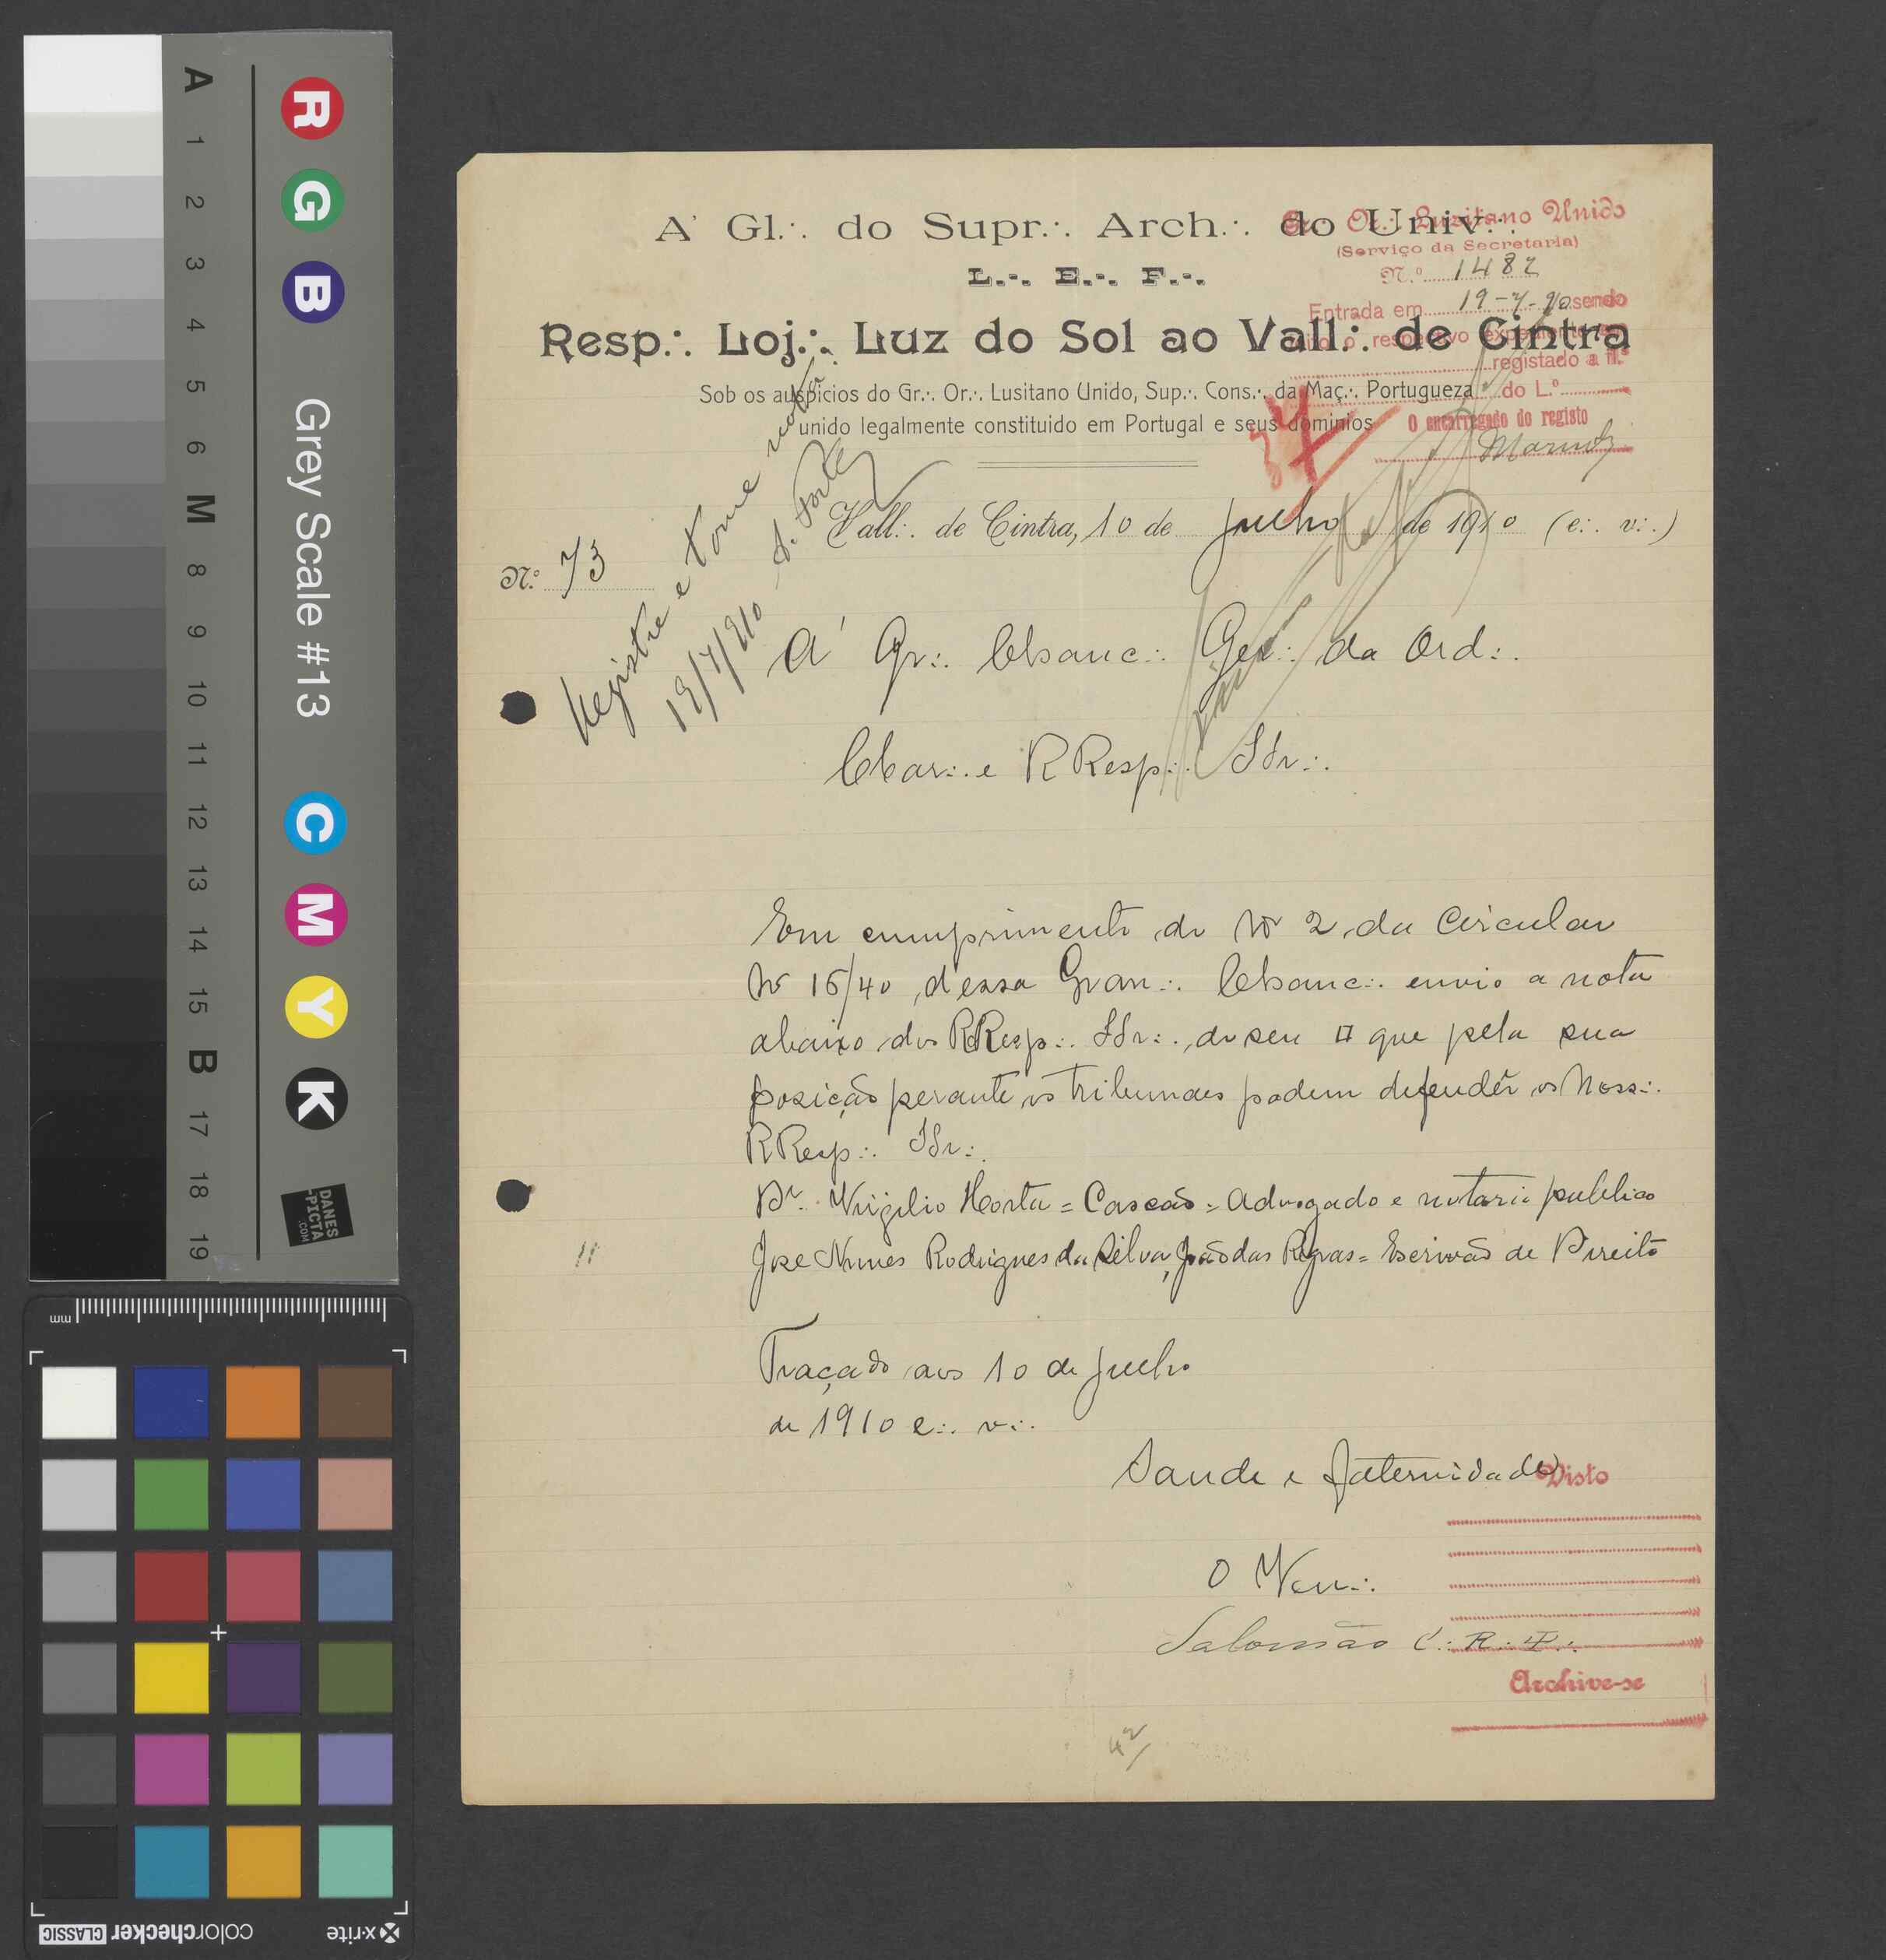 A' Gl.·. do Supr.·. Arch.·. do Univ.·.
L.·. E.·. F.·.
Resp.·. Loj.·. Luz do Sol ao Vall.·. de Cintra
Sob os auspicios do Gr.·. Or.·. Lusitano Unido, Sup.·. Cons.·. da Maç.·. Portugueza
unido legalmente constituido em Portugal e seus dominios
Gr.·. Or.·. Lusitano Unido
(Serviço da Secretaria)
N.º 1482
Entrada em 19-7-910 sendo
o respectivo expediente
registado a fl.ˢ
do L.º
O encarregado do registo
Vall.·. de Cintra, 10 de Julho de 1910 (e.·. v.·.)
N.º 73
Registre e tome nota
19/7/910
A' Gr.·. Chanc.·. Ger.·. da Ord.·.
Char.·. e RResp.·. Ir.·.
Em cumprimento do Nº 2 da Circular
Nº 16/40 d'essa Gran.·. Chanc.·. envio a nota
abaixo dos RResp.·. IIr.·. do seu □ que pela sua
posição perante os tribunaes podem defender os Noss.·.
RResp.·. IIr.·.
Dr. Virgilio Horta = Cascão = Advogado e notario publico
José Nunes Rodrigues da Silva, João das Regras = Escrivão de Direito
Traçado aos 10 de Julho
de 1910 e.·. v.·.
Saude e Fraternidade
O Ven.·.
Salomão C.·. R.·. ✠.·.
Visto
Archive-se
42
A
1
2
3
4
5
6
M
8
9
10
11
12
13
14
15
B
17
18
19
Grey Scale #13
R
G
B
C
M
Y
K
DANES
-PICTA
.COM
mm
x-rite
colorchecker CLASSIC